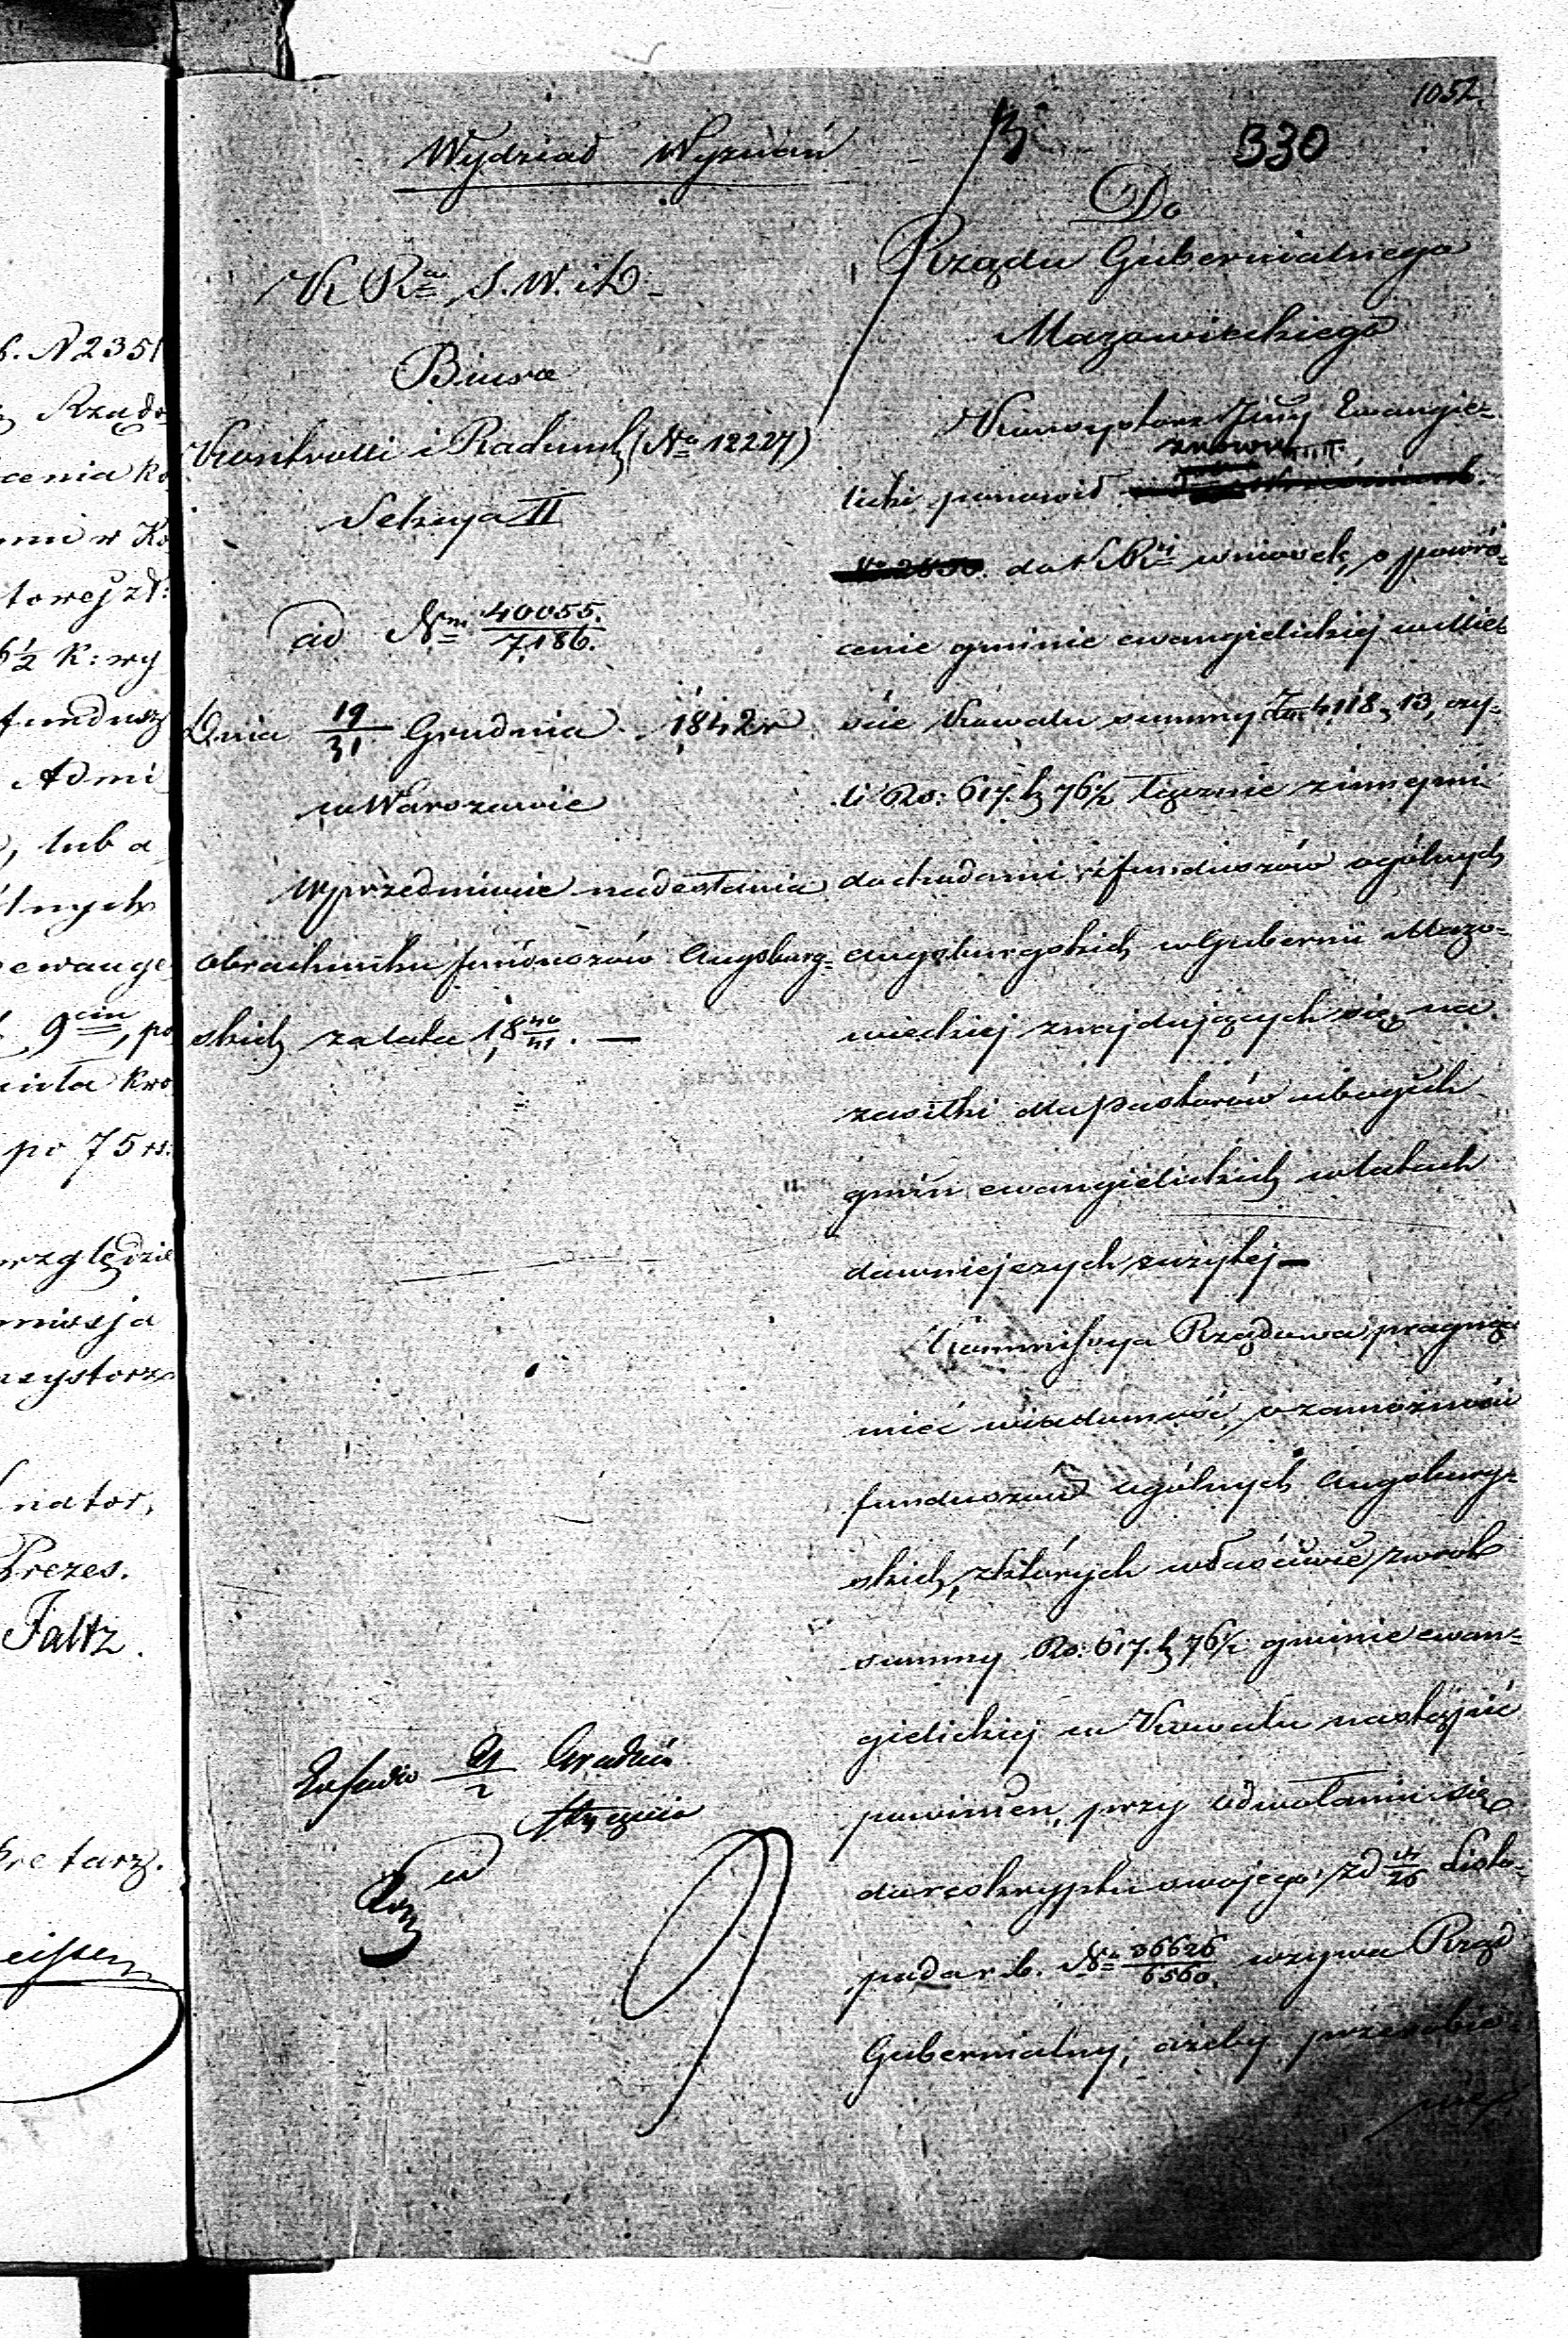 1052.
330
Wydział Wyznań
K R S. W. i D.
Biura
Kontrolli i Rachund (No 12227)
Sekcya II
ad Nm 40055./7186.
Dnia 19/31 Grudnia 1842 r
w Warszawie
W przedmiocie nadesłania
obrachunku funduszów Augsburg=
skich za lata 18 40/41. —
Grudnia
Do
Rządu Gubernialnego
Mazowieckiego
Konsystorz Jlny Ewangie
licki ponowił znowu
do K R wniosek, o powró-
cenie gminie ewangielickiej w Mieś
cie Kowalu summy Złp 4118 g 13, czy-
li Rs: 617. k 76½ łącznie z innemi
dochodami z funduszów ogólnych
augsburgskich w Gubernii Mazo-
wieckiej znajdujących się na
zasiłki dla Pastorów ubogich
gmin ewangielickich w latach
dawniejszych zużytej —
Kommissya Rządowa pragnąc
mieć wiadomość o zamożności
funduszów ogólnych Augsburg=
skich, z których właściwie zwrot
summy Rs: 617. k 76½ gminie ewan=
gielickiej w Kowalu nastąpić
powinien, przy odwołaniu się
do reskryptu swojego z d 14/26 Listo-
pada r. b. No 36626/6560. wzywa Rząd
Gubernialny, ażeby
b. N 2351
Rządo
cenia ko
towej zł:
6½ K: wy
fundusz
Admi
, lub a
lnych
ewange
9cin, po
po 75 rs:
względzie
missja
nsystorz
nator,
Prezes.
Faltz.
kretarz.